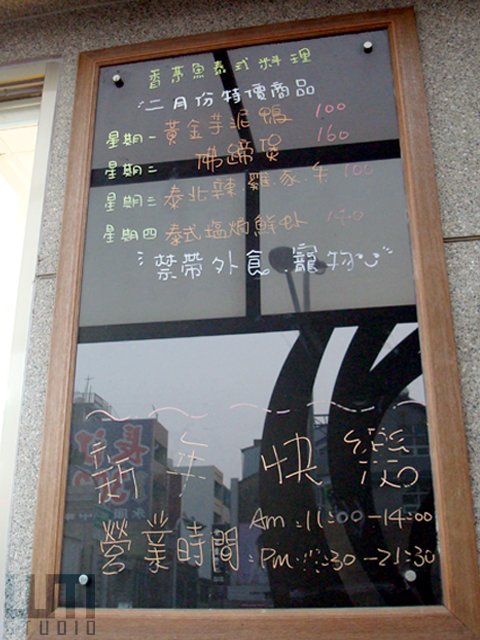 香茅魚泰式料理
二月份特價商品
星期一 黃金芋泥鴨 100
星期二 佛蹄煲 160
星期三 泰北辣.雞.豕.牛 100
星期四 泰式塩焗鮮虾
禁帶外食.寵物
新年快樂
營業時間 Am:11:00-14:00
Pm :30-21:30
UMI
STUDIO